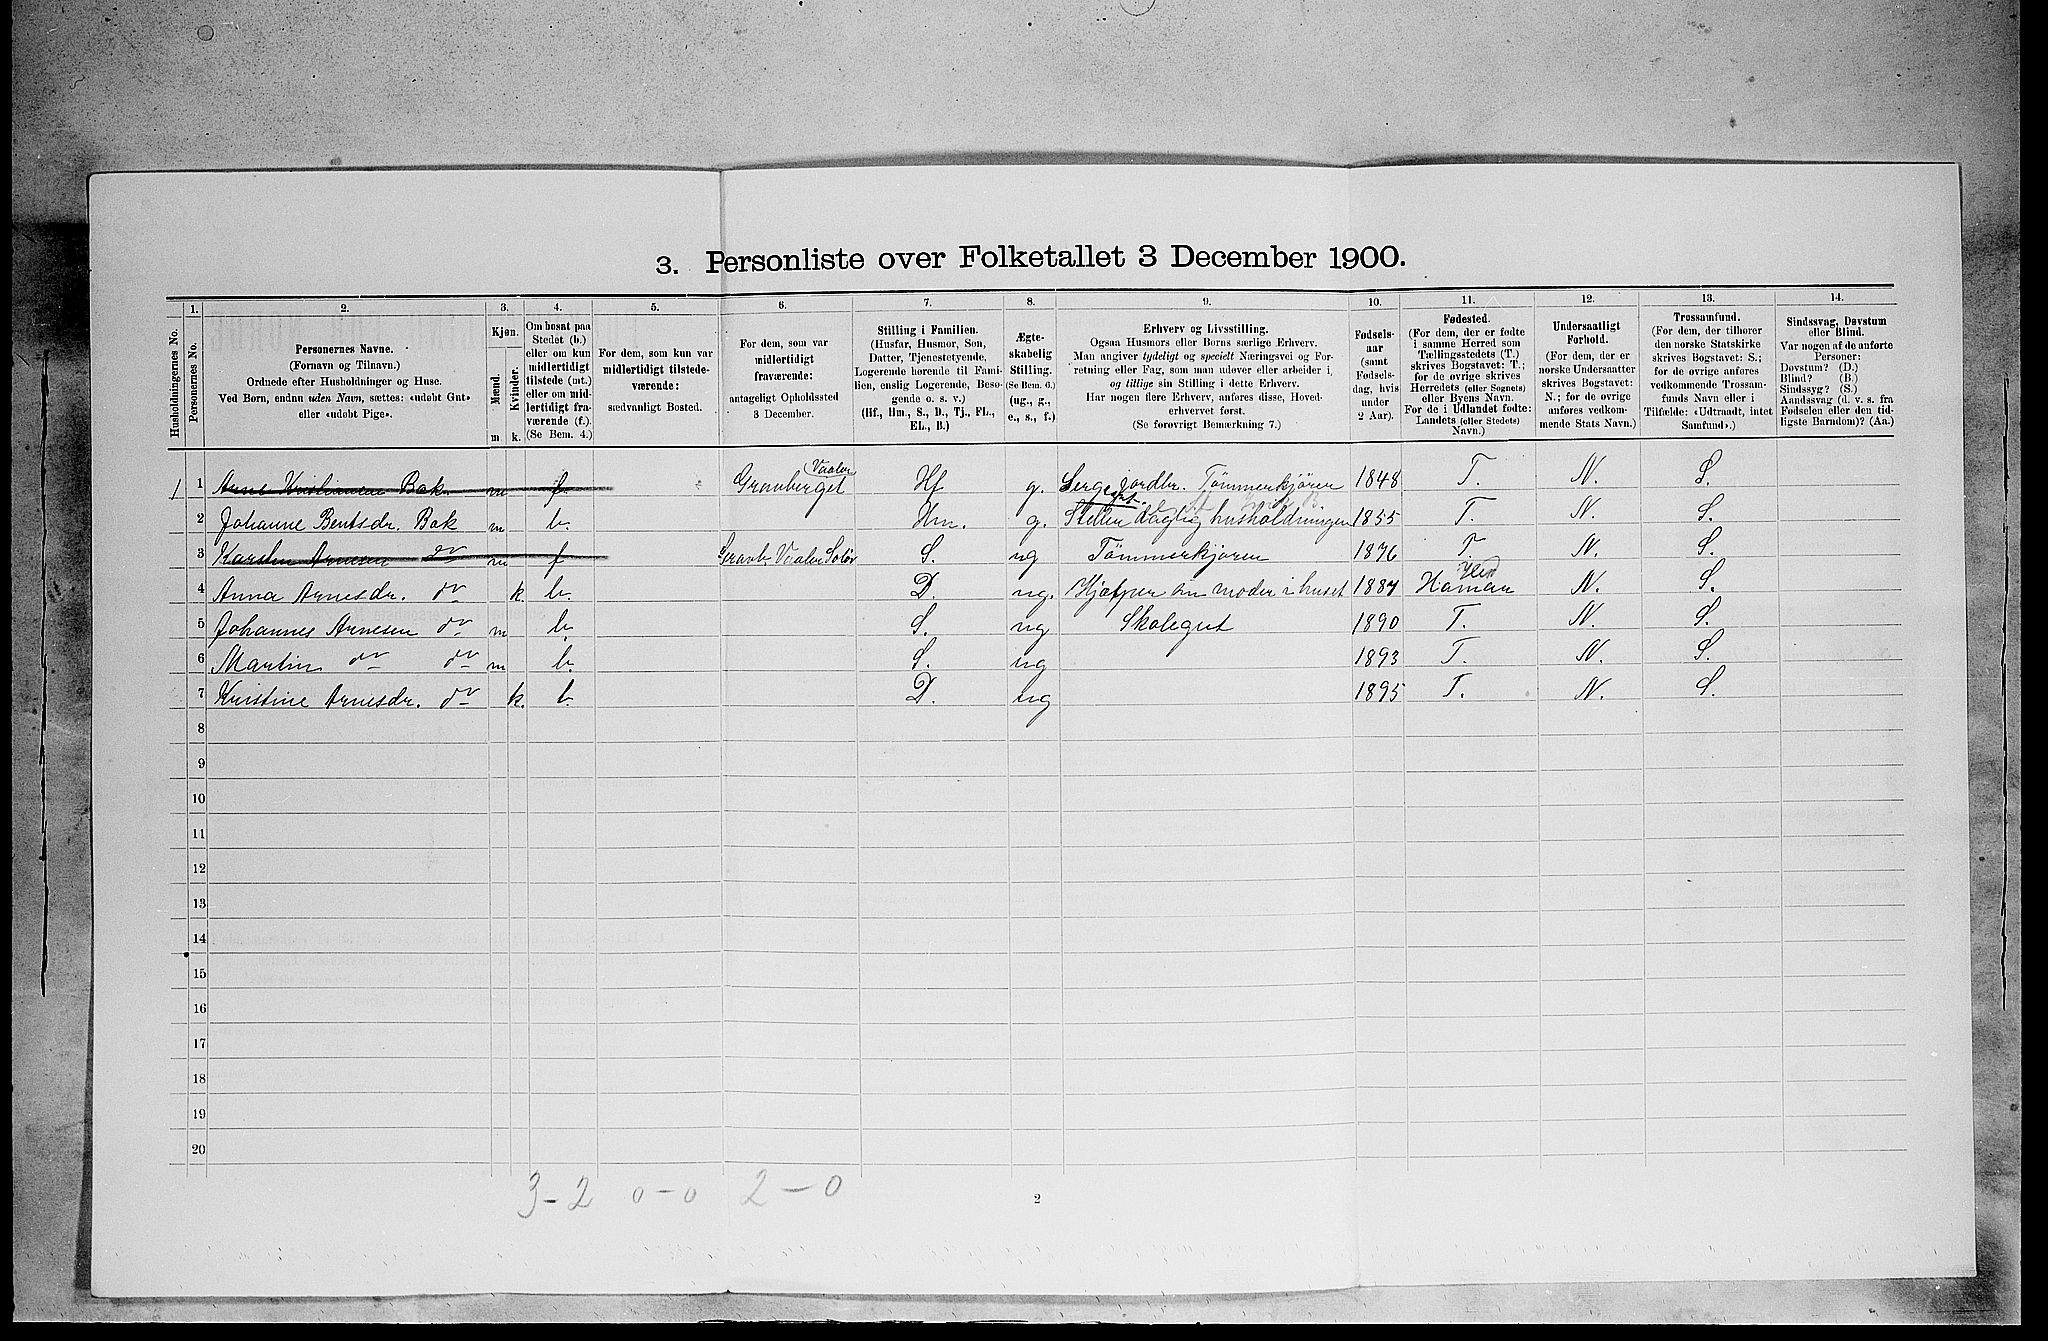 3. Personliste over Folketallet 3 December 1900.
Husholdningernes No.
1. Personernes No.
2. Personernes Navne. (Fornavn og Tilnavn.) Ordnede efter Husholdninger og Huse. Ved Børn, endnu uden Navn, sættes: «udøbt Gut» eller «udøbt Pige».
3. Kjøn. Mænd. m. Kvinder. k.
4. Om bosat paa Stedet (b.) eller om kun midlertidigt tilstede (mt.) eller om midlertidigt fraværende (f.). (Se Bem. 4.)
5. For dem, som kun var midlertidigt tilstedeværende: sædvanligt Bosted.
6. For dem, som var midlertidigt fraværende: antageligt Opholdssted 3 December.
7. Stilling i Familien. (Husfar, Husmor, Søn, Datter, Tjenestetyende, Logerende hørende til Familien, enslig Logerende, Besøgende o. s. v.) (Hf., Hm., S., D., Tj., FL., EL., B.)
8. Ægteskabelig Stilling. (Se Bem. 6.) (ug., g., e., s., f.)
9. Erhverv og Livsstilling. Ogsaa Husmors eller Børns særlige Erhverv. Man angiver tydeligt og specielt Næringsvei og Forretning eller Fag, som man udøver eller arbeider i, og tillige sin Stilling i dette Erhverv. Har nogen flere Erhverv, anføres disse, Hovederhvervet først. (Se forøvrigt Bemærkning 7.)
10. Fødselsaar (samt Fødselsdag, hvis under 2 Aar).
11. Fødested. (For dem, der er fødte i samme Herred som Tællingsstedets (T.) skrives Bogstavet: T.; for de øvrige skrives Herredets (eller Sognets) eller Byens Navn. For de i Udlandet fødte: Landets (eller Stedets) Navn.)
12. Undersaatligt Forhold. (For dem, der er norske Undersaatter skrives Bogstavet: N.; for de øvrige anføres vedkommende Stats Navn.)
13. Trossamfund. (For dem, der tilhører den norske Statskirke skrives Bogstavet: S.; for de øvrige anføres vedkommende Trossamfunds Navn eller i Tilfælde: «Udtraadt, intet Samfund».)
14. Sindssvag, Døvstum eller Blind. Var nogen af de anførte Personer: Døvstum? (D.) Blind? (B.) Sindssyg? (S.) Aandssvag (d. v. s. fra Fødselen eller den tidligste Barndom)? (Aa.)
1 1 Arne Kristiansen Bak m f. Gravberget Vaaler Hf g. Sergent. jordbr. Tømmerkjøren 1848 T. N. S.
2 Johanne Bentsdr. Bak m b. Hm. g. Stellen daglig husholdningen 1855 T. N. S.
3 Karsten Arnesen do m f Gravb. Vaaler Solør S. ug Tømmerkjøren 1876 T. N. S.
4 Anna Arnesdr. do k. b. D. ug. Hjælper sin moder i huset 1887 Hamar N. S.
5 Johannes Arnesen do m b. S. ug Skolegut 1890 T. N. S.
6 Martin do do m b. S. ug 1893 T. N. S.
7 Kristine Arnesdr. do k. b. D. ug 1895 T. N. S.
8
9
10
11
12
13
14
15
16
17
18
19
20
3-2 0-0 2-0
2